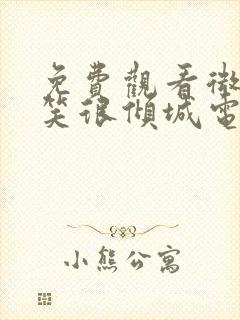 免費觀看微
笑很傾城電
小熊公寓